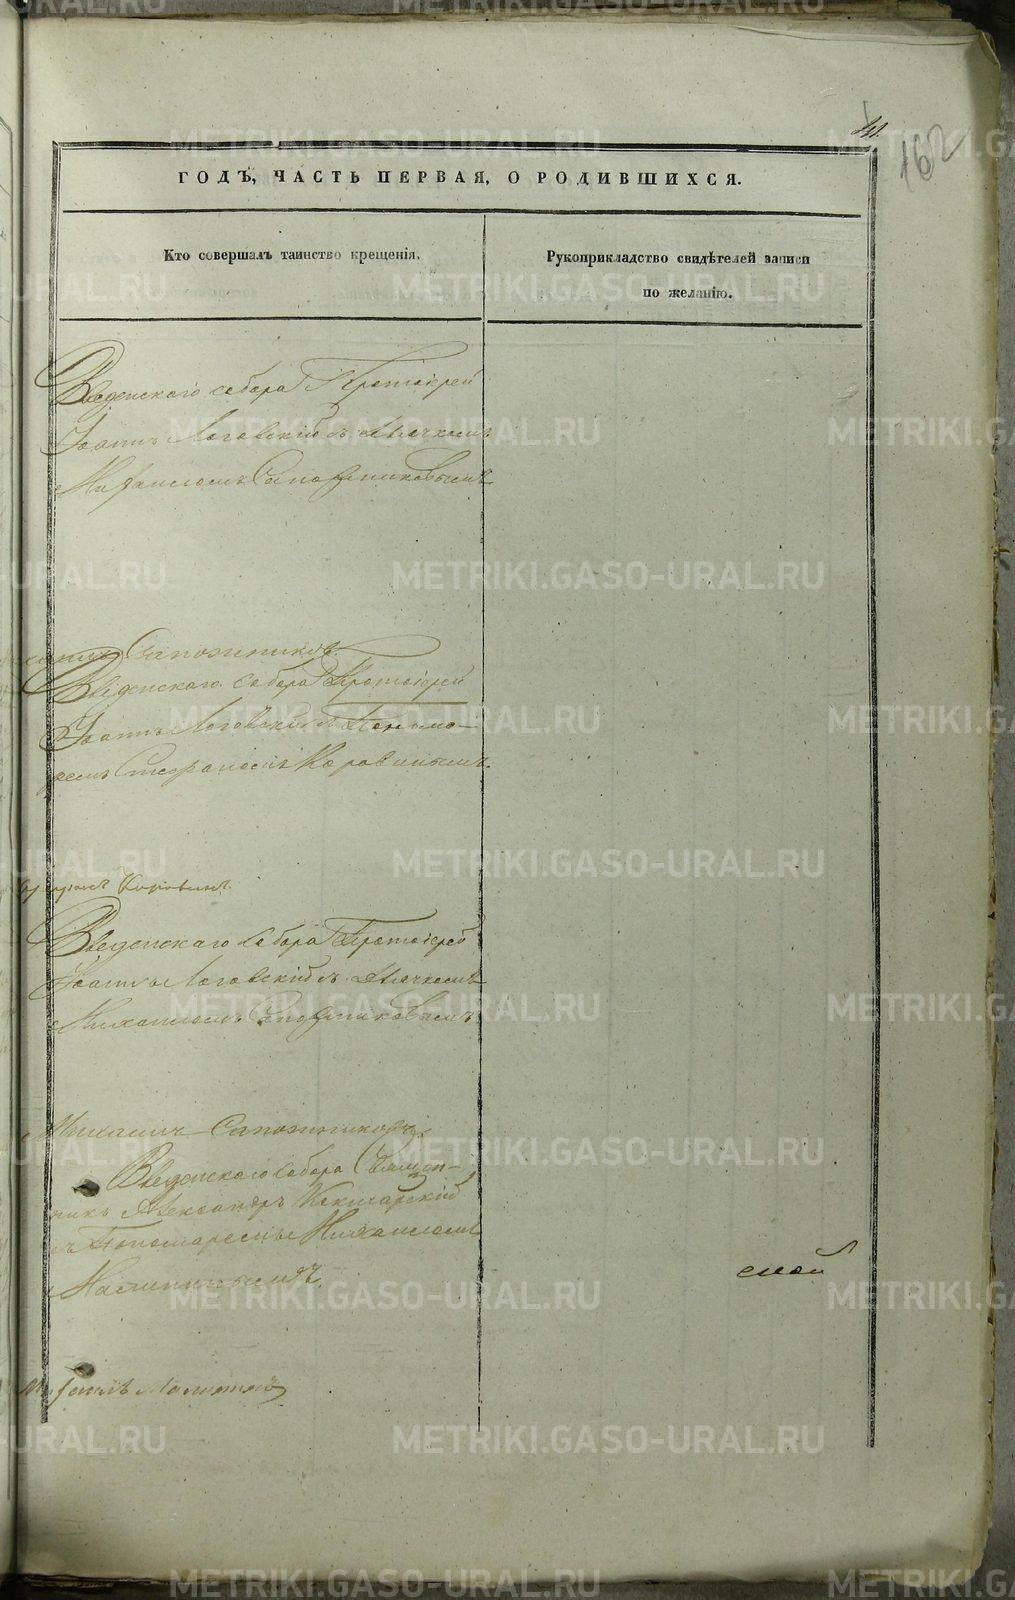 41.
162
ГОДЪ, ЧАСТЬ ПЕРВАЯ, О РОДИВШИХСЯ.
Кто совершалъ таинство крещенія.
Рукоприкладство свидѣтелей записи
по желанію.
Введенскаго собора Протоіерей
Іоаннъ Логовскій съ Дьячкомъ
Михаиломъ Сапожниковымъ
Сапожниковъ
Введенскаго собора Протоіерей
Іоаннъ Логовскій съ Понома-
ремъ Стефаномъ Коровинымъ.
Коровинъ
Введенскаго собора Протоіерей
Іоаннъ Логовскій съ Дьячкомъ
Михаиломъ Сапожниковымъ
Михаилъ Сапожниковъ
Введенскаго собора Священ-
никъ Александръ
съ Пономаремъ Михаиломъ
ской
Михаилъ
METRIKI.GASO-URAL.RU